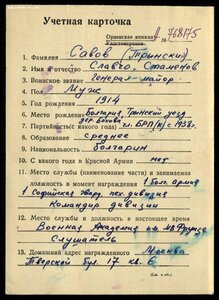 Учетная карточка
Орденская книжка № 768175
Удостоверение
1. Фамилия Савов (Трынски)
2. Имя и отчество Славчо, Стаменов
3. Воинское звание Генерал-майор
4. Пол Муж
5. Год рождения 1914
6. Место рождения Болгария, Трынский уезд
7. Партийность (с какого года) чл. БРП(к) с 1938 г.
8. Образование среднее
9. Национальность болгарин
10. С какого года в Красной Армии нет
11. Место службы (наименование части) и занимаемая
должность в момент награждения 1 Болг. армия
1 Софийская Гвард. пех. дивизия
Командир дивизии
12. Место службы и должность в настоящее время
Военная Академия им. М.В. Фрунзе
Слушатель
13. Домашний адрес награжденного Москва
Тверской бул. 17 кв. 6
(См. н об.)